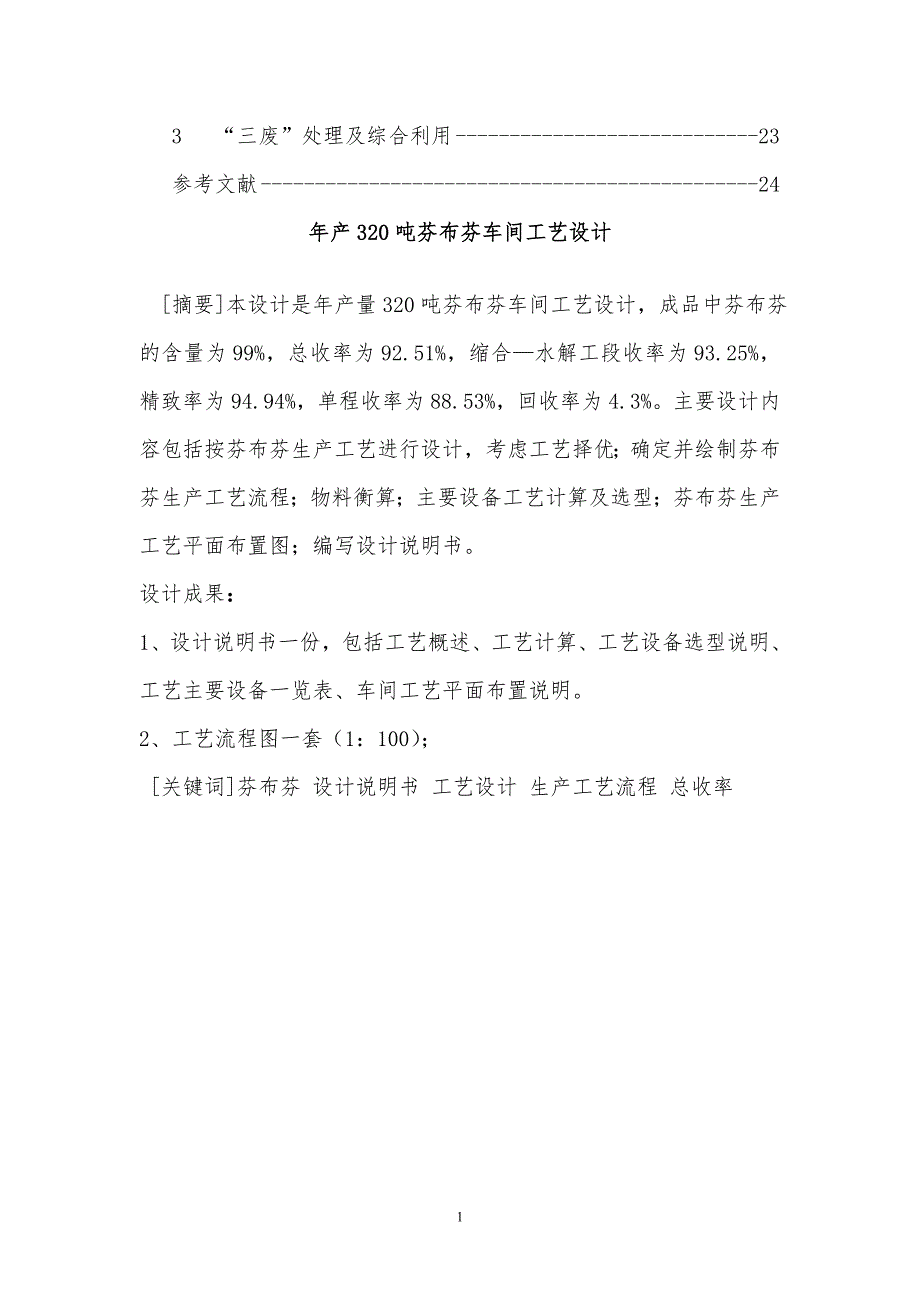 3 “三废”处理及综合利用----------------------------23
参考文献----------------------------------------------24
年产 320 吨芬布芬车间工艺设计
[摘要]本设计是年产量 320 吨芬布芬车间工艺设计，成品中芬布芬
的含量为 99%，总收率为 92.51%，缩合—水解工段收率为 93.25%，
精致率为 94.94%，单程收率为 88.53%，回收率为 4.3%。主要设计内
容包括按芬布芬生产工艺进行设计，考虑工艺择优；确定并绘制芬布
芬生产工艺流程；物料衡算；主要设备工艺计算及选型；芬布芬生产
工艺平面布置图；编写设计说明书。
设计成果：
1、设计说明书一份，包括工艺概述、工艺计算、工艺设备选型说明、
工艺主要设备一览表、车间工艺平面布置说明。
2、工艺流程图一套（1：100）；
[关键词]芬布芬 设计说明书 工艺设计 生产工艺流程 总收率
1